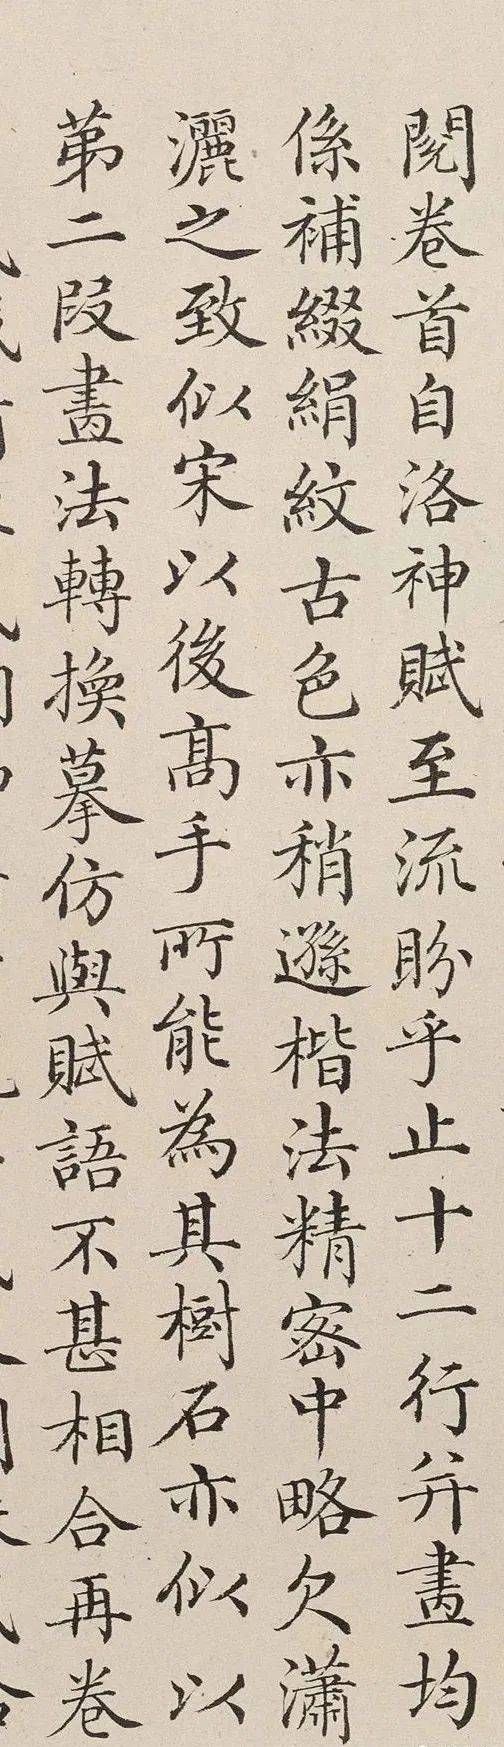 閱卷首自洛神賦至流盼乎止十二行并畫均
係補綴絹紋古色亦稍遜楷法精密中略欠瀟
灑之致似宋以後高手所能為其樹石亦似以
第二段畫法轉換摹仿與賦語不甚相合再卷